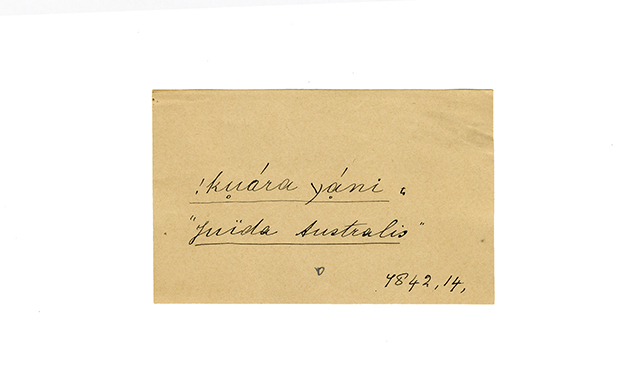 !kụára γạ́ni „
"Juïda Australis"
4842,14,